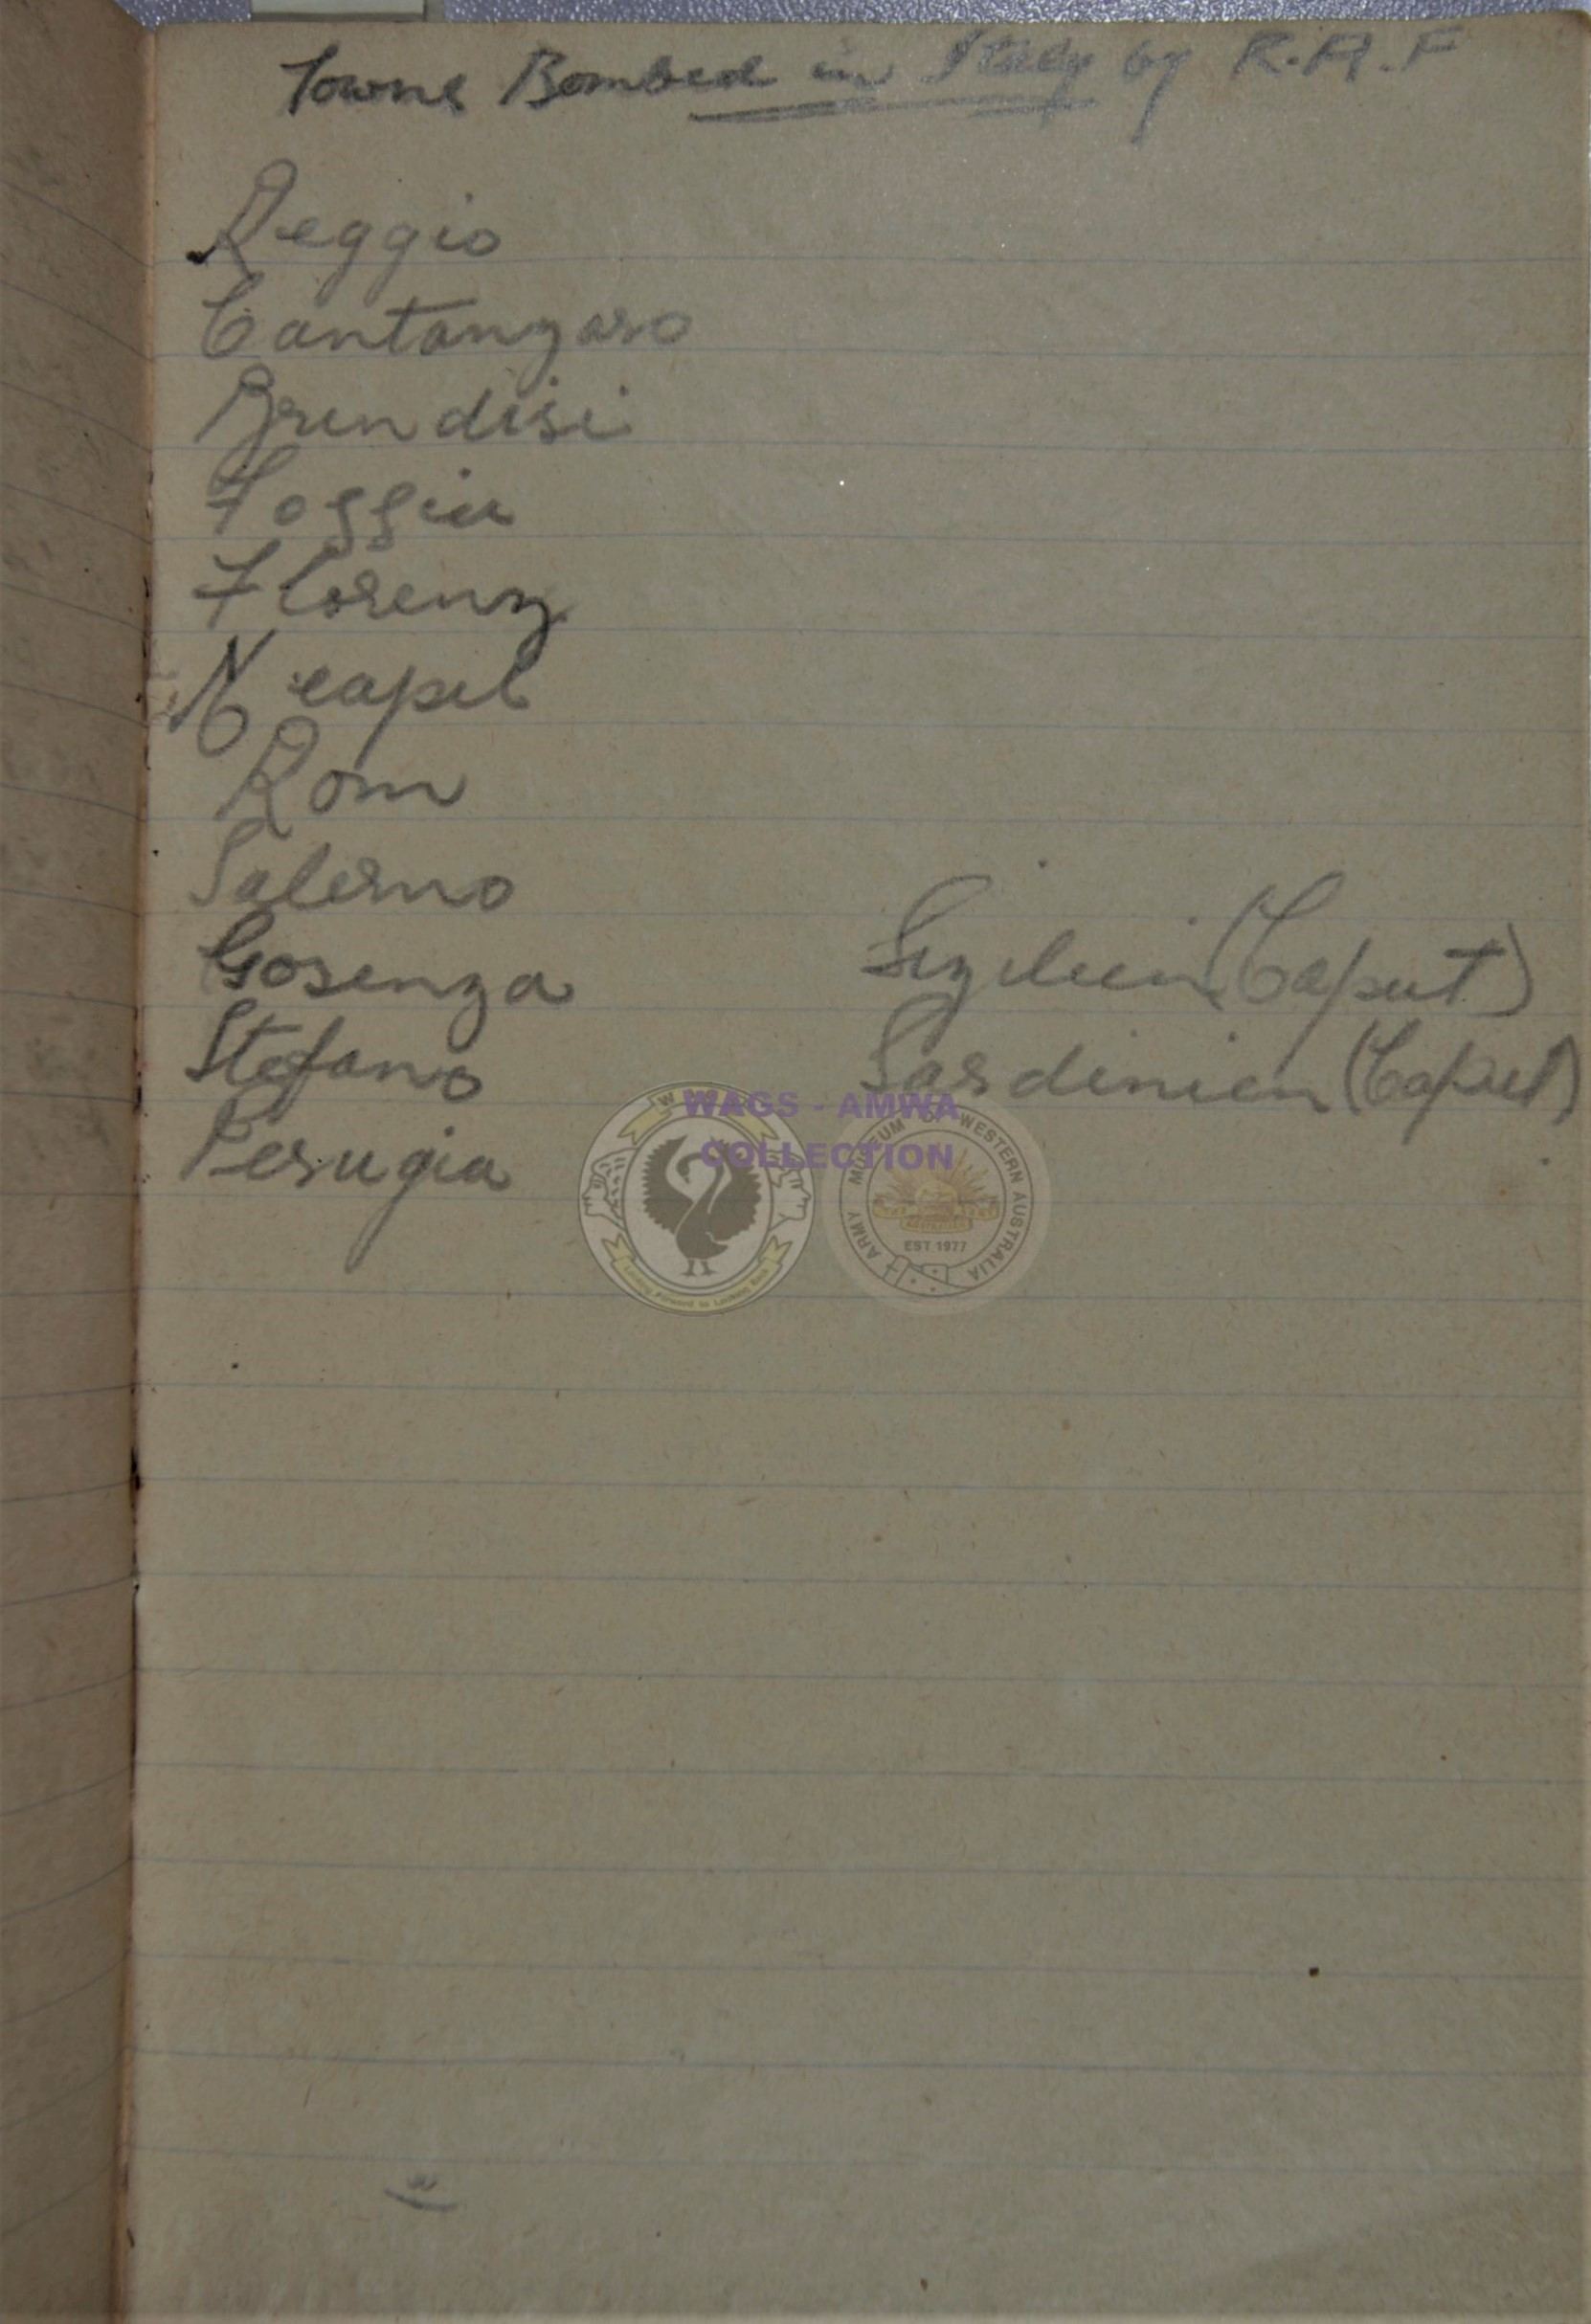 Towns Bombed in Italy by R.A.F
Reggio
Cantanzaro
Brindisi
Foggia
Florenz
Neapel
Rom
Salerno
Gosenza
Sizilien (Caput)
Stefano
Sardinien (Caput)
Perugia
WAGS - AMWA
COLLECTION
ARMY MUSEUM OF WESTERN AUSTRALIA
EST 1977